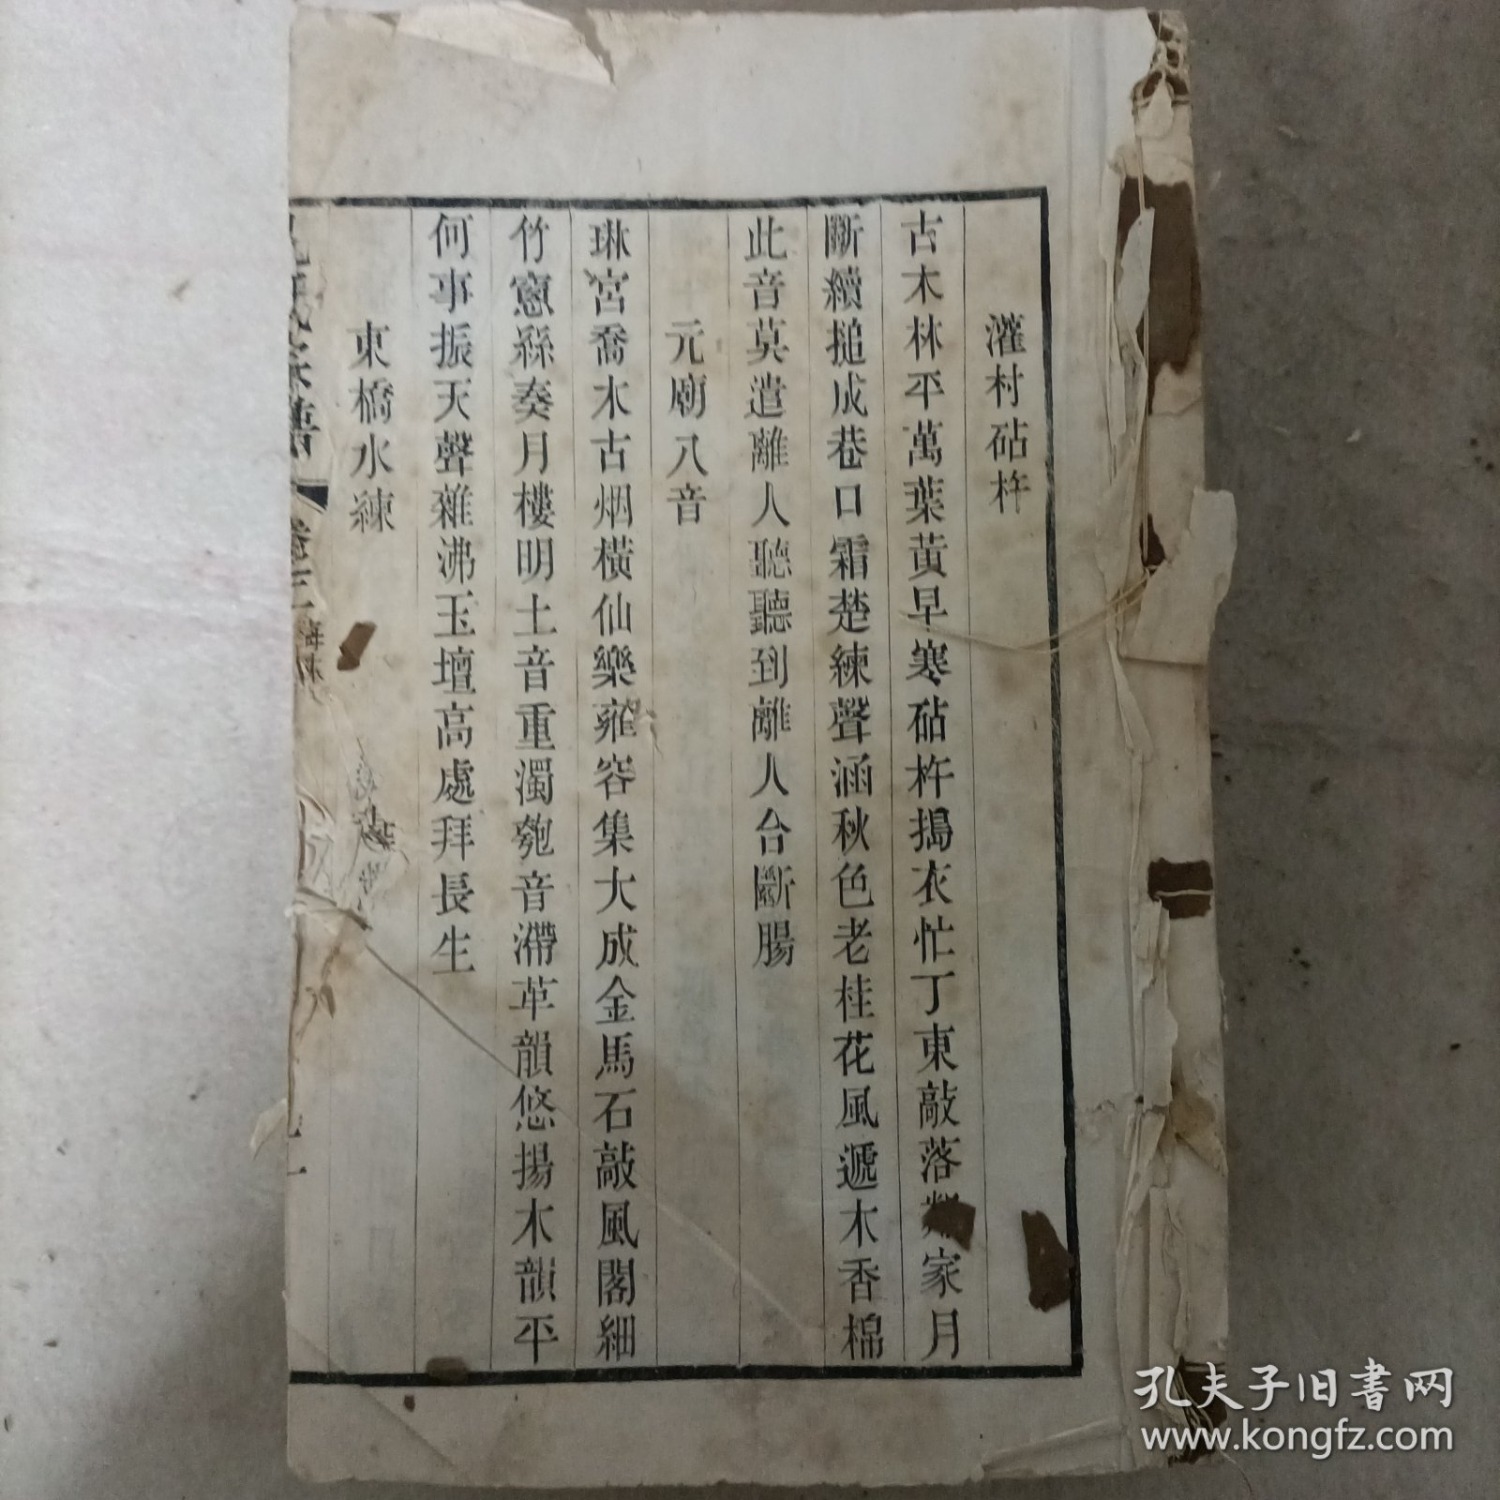 灌村砧杵
古木林平萬葉黃早寒砧杵搗衣忙丁東敲落家月
斷續搥成巷口霜楚練聲涵秋色老桂花風遞木香棉
此音莫遣離人聽聽到離人合斷腸
元廟八音
琳宮喬木古烟橫仙樂雍容集大成金馬石敲風閣細
竹窻絲奏月樓明土音重濁匏音滯革韻悠揚木韻平
何事振天聲雜沸玉壇高處拜長生
東橋水練
氏宗譜 卷三
孔夫子旧書网
www.kongfz.com